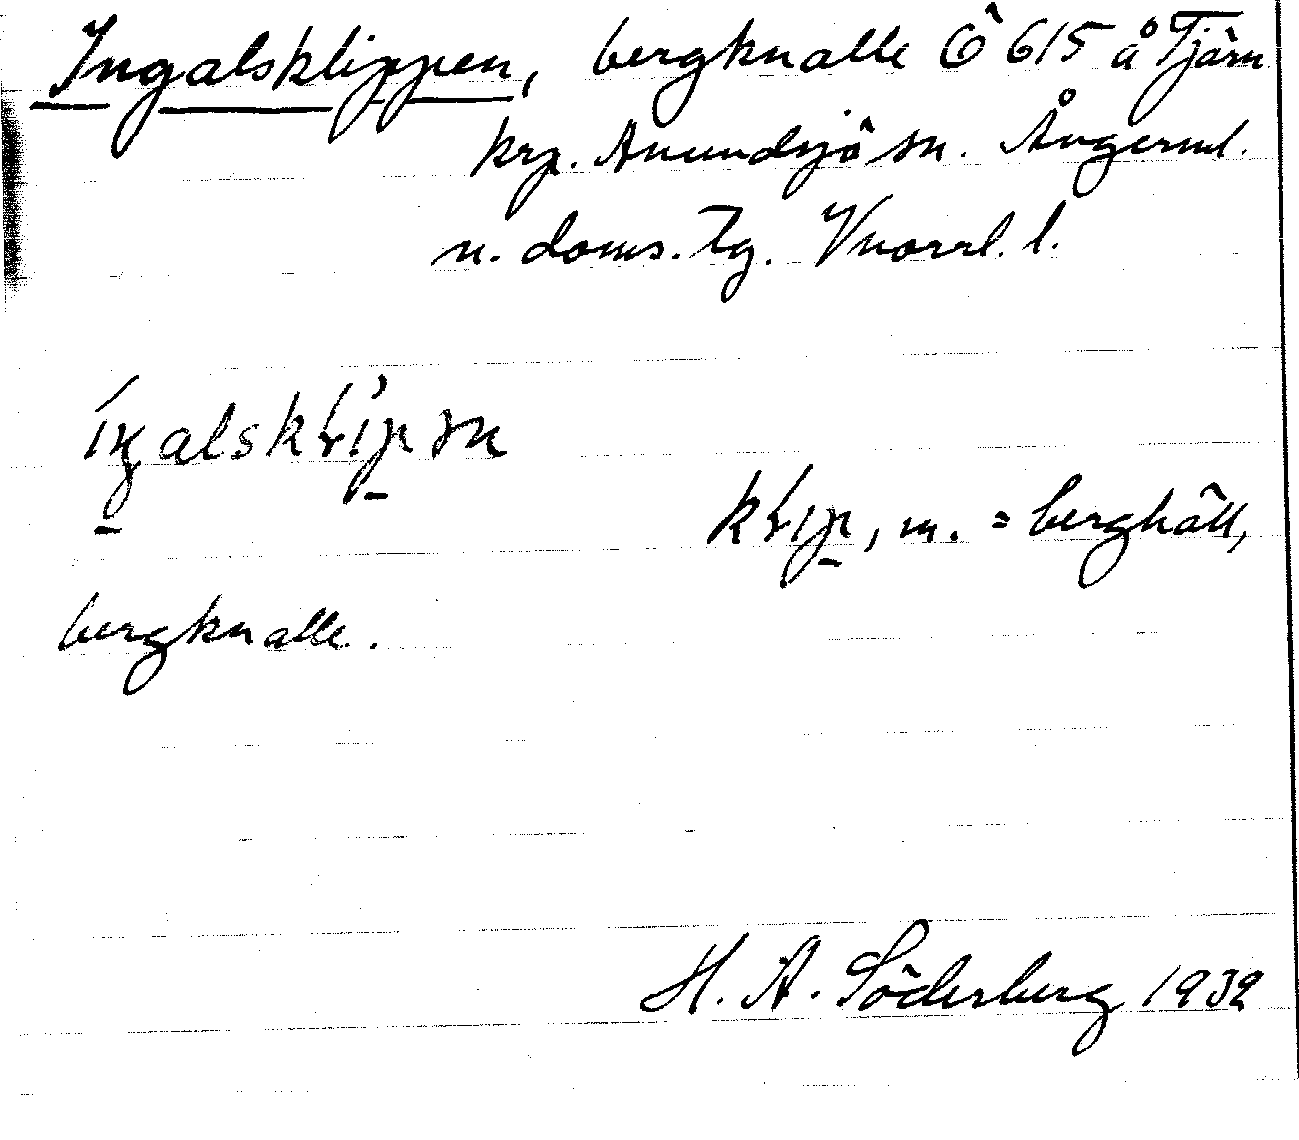 Ingalsklippen, bergknalle Ö 615 å Tjärn
krp. Anundsjö sn. Ångerml.
n. doms. Tg. Vnorrl. l.
berghäll,
bergknalle.
H. A. Söderberg 1932